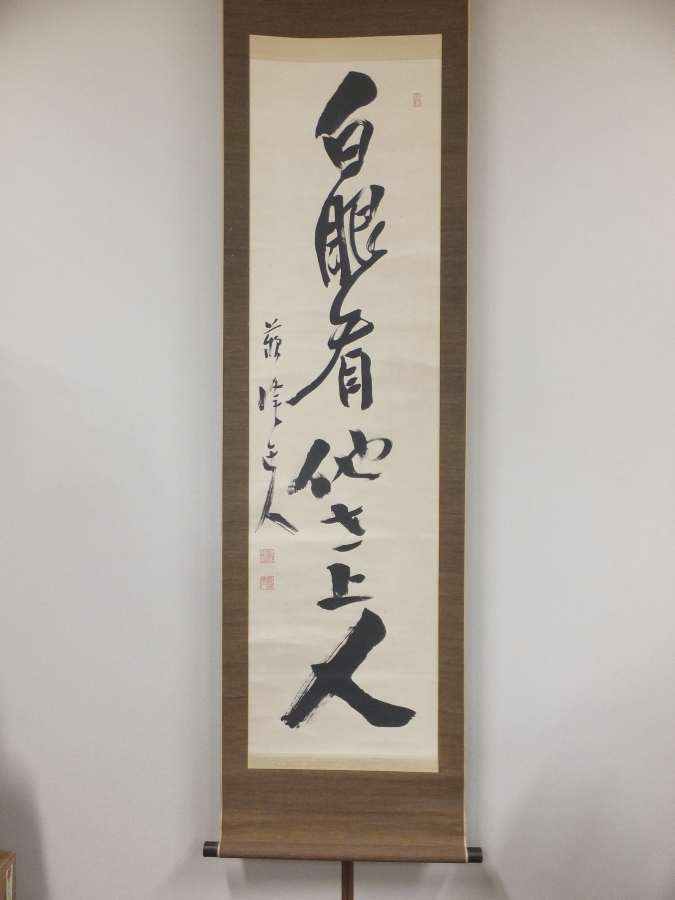 白眼看他世上人
蘇峰老人